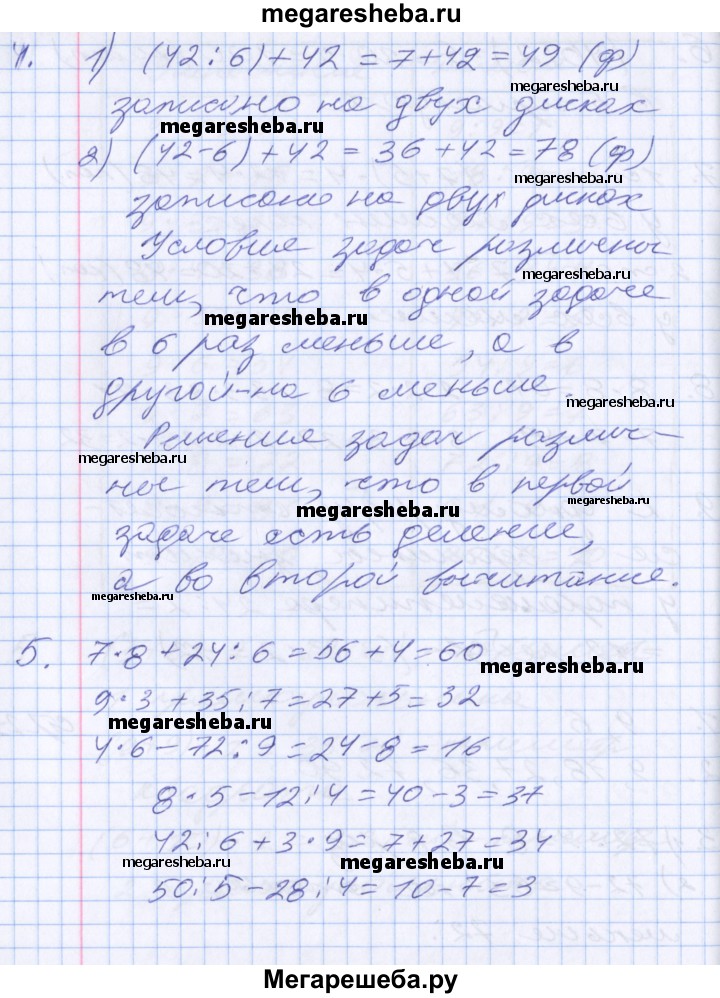 megaresheba.ru
4. 1) (42 : 6) + 42 = 7 + 42 = 49 (ф)
megaresheba.ru
записано на двух дисках
megaresheba.ru
2) (42 - 6) + 42 = 36 + 42 = 78 (ф)
megaresheba.ru
записано на двух дисках
Условия задач различны
megaresheba.ru
тем, что в одной задаче
megaresheba.ru
в 6 раз меньше, а в
другой - на 6 меньше.
megaresheba.ru
Решения задач различ-
megaresheba.ru
ны тем, что в первой
megaresheba.ru
megaresheba.ru
задаче есть деление,
а во второй вычитание.
megaresheba.ru
5. 7 · 8 + 24 : 6 = 56 + 4 = 60
megaresheba.ru
9 · 3 + 35 : 7 = 27 + 5 = 32
megaresheba.ru
4 · 6 - 72 : 9 = 24 - 8 = 16
8 · 5 - 12 : 4 = 40 - 3 = 37
42 : 6 + 3 · 9 = 7 + 27 = 34
megaresheba.ru
megaresheba.ru
50 : 5 - 28 : 4 = 10 - 7 = 3
Мегарешеба.ру